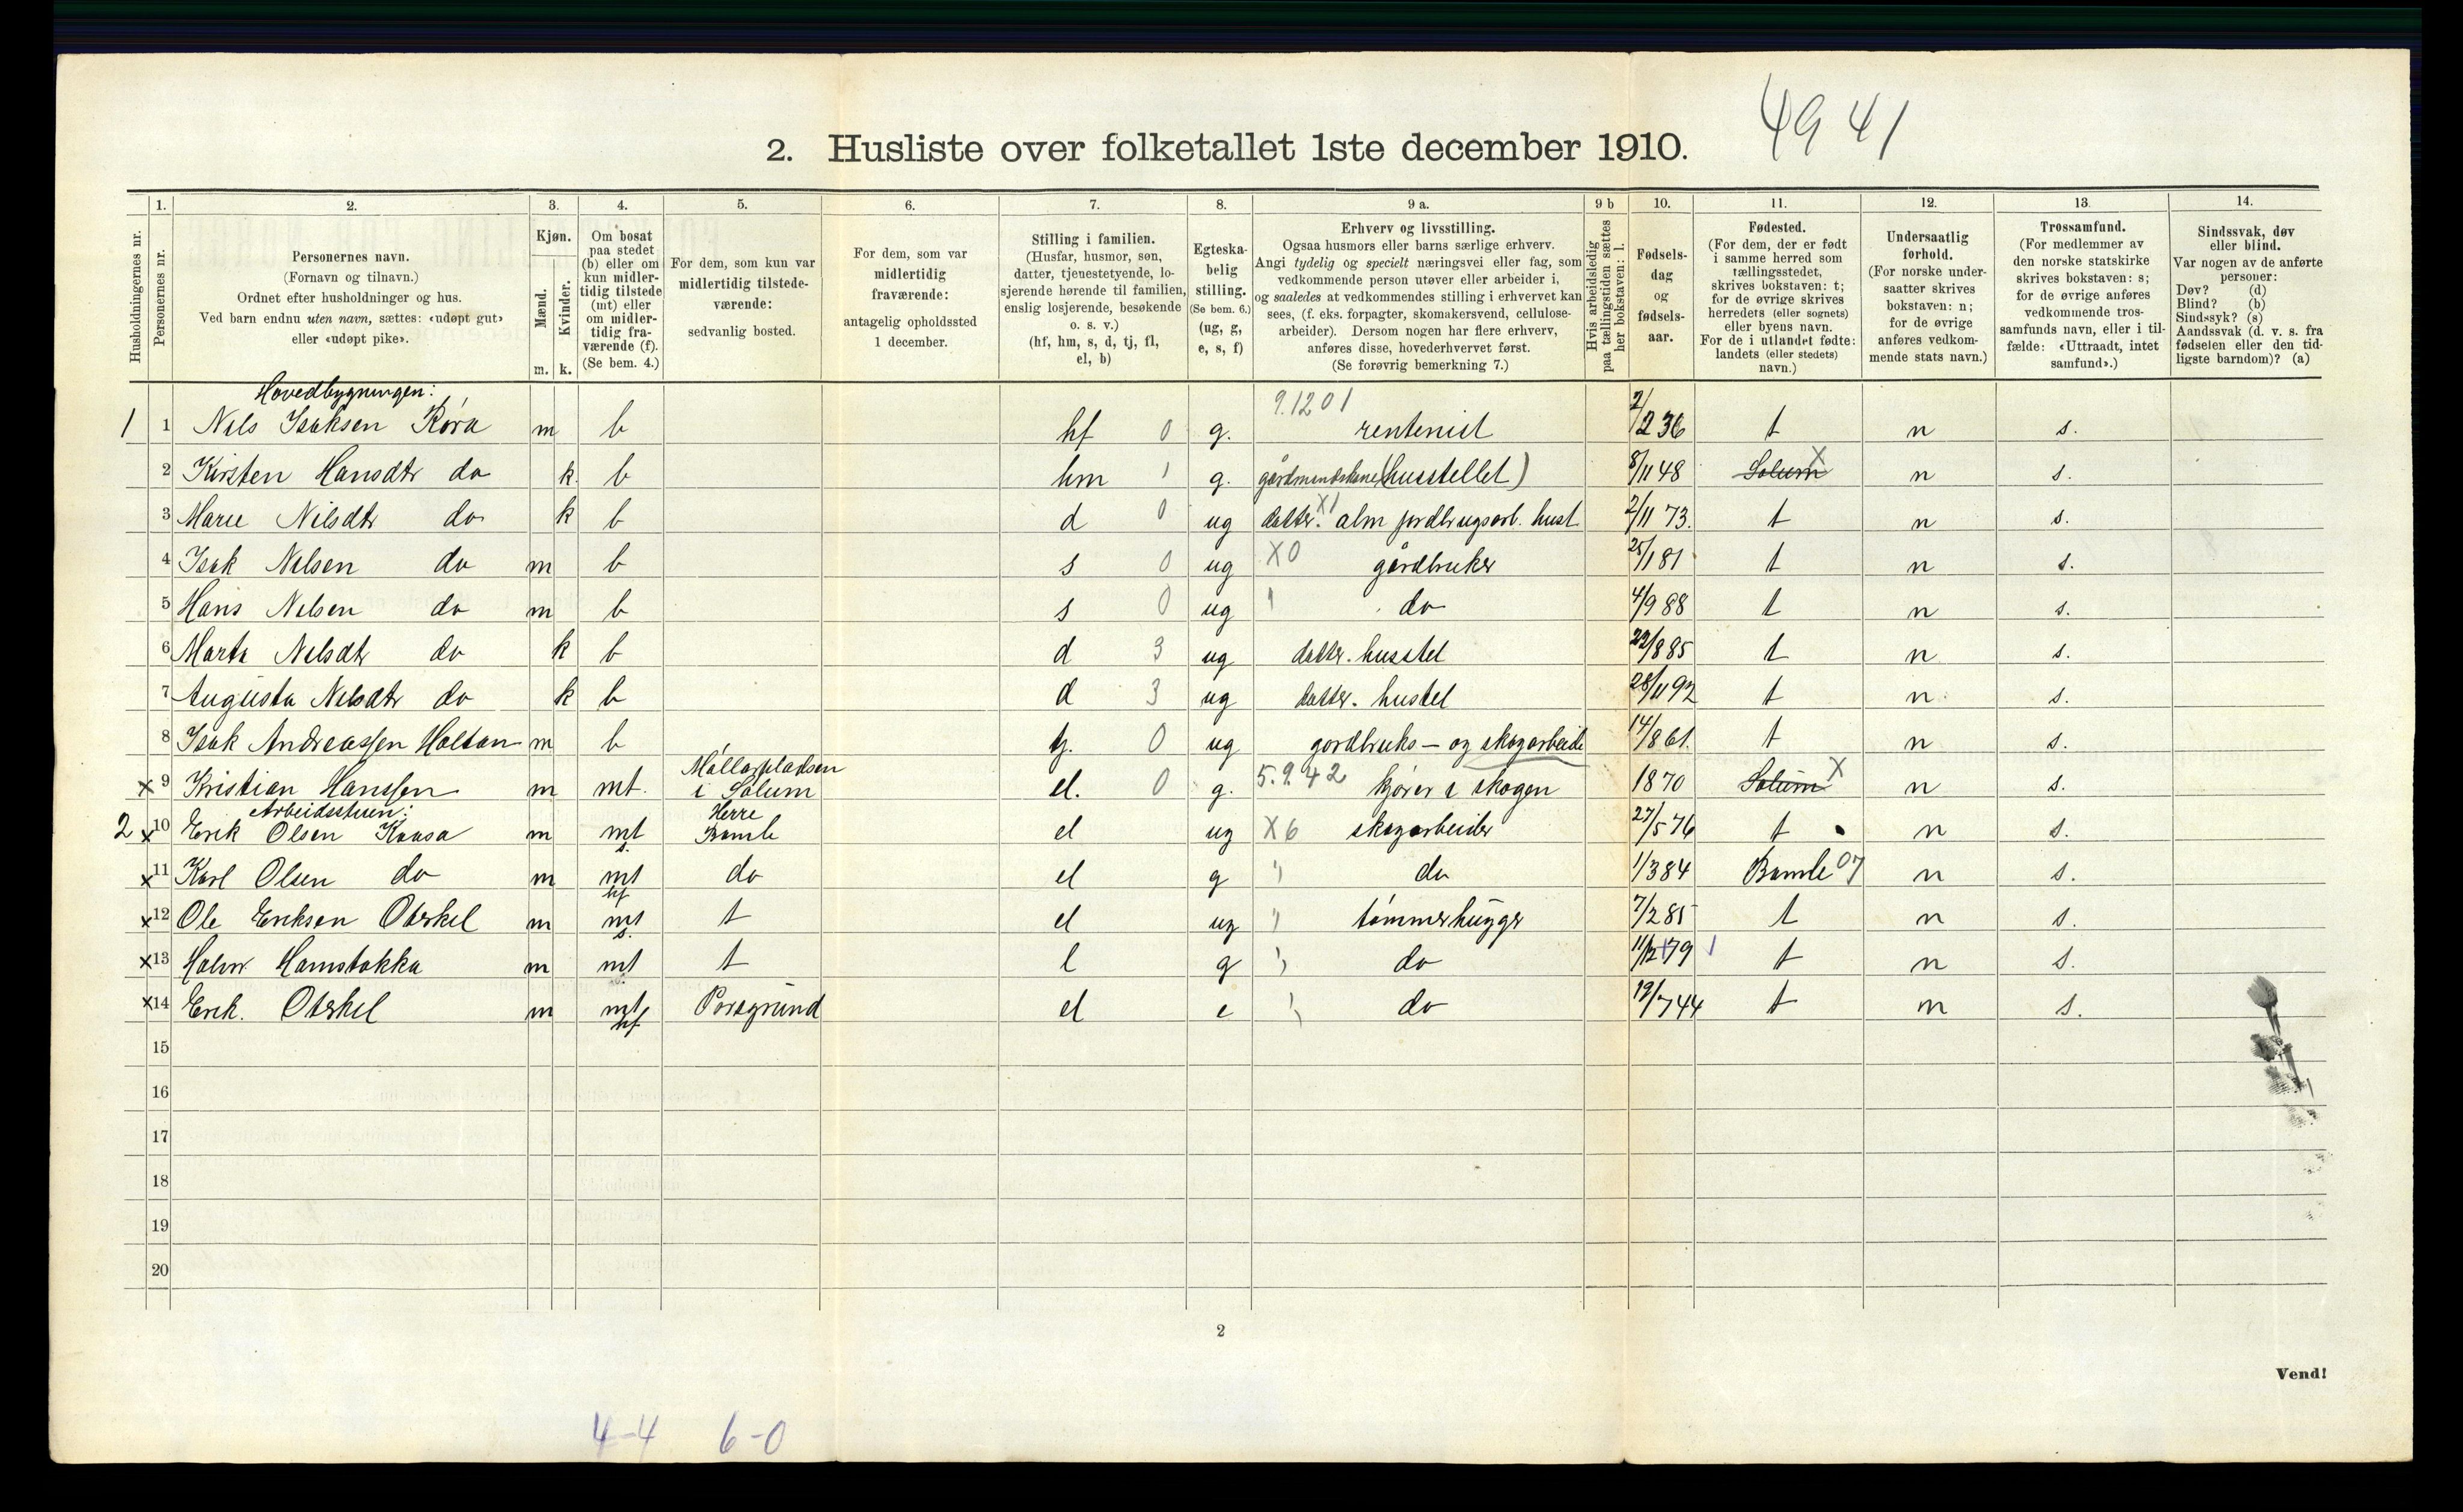 4941
2. Husliste over folketallet 1ste december 1910.
Husholdningernes nr.
1. Personernes nr.
2. Personernes navn.
(Fornavn og tilnavn.)
Ordnet efter husholdninger og hus.
Ved barn endnu uten navn, sættes: «udøpt gut»
eller «udøpt pike».
3. Kjøn.
Mænd. Kvinder.
m. k.
4. Om bosat
paa stedet
(b) eller om
kun midler-
tidig tilstede
(mt) eller
om midler-
tidig fra-
værende (f).
(Se bem. 4.)
5. For dem, som kun var
midlertidig tilstede-
værende:
sedvanlig bosted.
6. For dem, som var
midlertidig
fraværende:
antagelig opholdssted
1 december.
7. Stilling i familien.
(Husfar, husmor, søn,
datter, tjenestetyende, lo-
sjerende hørende til familien,
enslig losjerende, besøkende
o. s. v.)
(hf, hm, s, d, tj, fl,
el, b)
8. Egteska-
belig
stilling.
(Se bem. 6.)
(ug, g,
e, s, f)
9 a. Erhverv og livsstilling.
Ogsaa husmors eller barns særlige erhverv.
Angi tydelig og specielt næringsvei eller fag, som
vedkommende person utøver eller arbeider i,
og saaledes at vedkommendes stilling i erhvervet kan
sees, (f. eks. forpagter, skomakersvend, cellulose-
arbeider). Dersom nogen har flere erhverv,
anføres disse, hovederhvervet først.
(Se forøvrig bemerkning 7.)
9 b Hvis arbeidsledig
paa tællingstiden sættes
her bokstaven: l.
10. Fødsels-
dag
og
fødsels-
aar.
11. Fødested.
(For dem, der er født
i samme herred som
tællingsstedet,
skrives bokstaven: t;
for de øvrige skrives
herredets (eller sognets)
eller byens navn.
For de i utlandet fødte:
landets (eller stedets)
navn.)
12. Undersaatlig
forhold.
(For norske under-
saatter skrives
bokstaven: n;
for de øvrige
anføres vedkom-
mende stats navn.)
13. Trossamfund.
(For medlemmer av
den norske statskirke
skrives bokstaven: s;
for de øvrige anføres
vedkommende tros-
samfunds navn, eller i til-
fælde: «Uttraadt, intet
samfund».)
14. Sindssvak, døv
eller blind.
Var nogen av de anførte
personer:
Døv? (d)
Blind? (b)
Sindssyk? (s)
Aandssvak (d. v. s. fra
fødselen eller den tid-
ligste barndom)? (a)
Hovedbygningen:
1 1 Nils Isaksen Røra m b hf 0 g. 9.1201 rentenist 2/2 36 t n s.
2 Kirsten Hansdtr do k. b hm 1 g. gårdmandskone (husstellet) 8/11 48 Solum X n s.
3 Marie Nilsdtr do k b d 0 ug datter. X1 alm jordbrugsarb. hust 2/11 73. t n s.
4 Isak Nilsen do m b s 0 ug X0 gårdbruker 25/1 81 t n s.
5 Hans Nilsen do m b s 0 ug do 4/9 88 t n s.
6 Marta Nilsdtr do k b d 3 ug datter. husstel 22/8 85 t n s.
7 Augusta Nilsdtr do k b d 3 ug datter. hustel 28/11 92 t n s.
8 Isak Andreassen Holtan m b tj. 0 ug gordbruks- og skogarbeide 14/8 61. t n s.
x 9 Kristian Hanssen m mt. Møllarpladsen i Solum el. 0 g. 5.942 kjører i skogen 1870 Solum X n s.
Arbeidsstuen:
2 x 10 Erik Olsen Kaasa m mt s. Herre Bamle el ug X6 skogarbeider 27/5 76 t n s.
x 11 Karl Olsen do m mt hf do el g " do 1/3 84 Bamle 07 n s.
x 12 Ole Eriksen Oterkil m mt s. t el ug " tømmerhugger 7/2 85 t n s.
x 13 Halvor Hamstokka m mt t l g " do 11/12 79 t n s.
x 14 Erik. Oterkil m mt hf Porsgrund el e " do 19/7 44 t n s.
15
16
17
18
19
20
2
Vend!
4-4 6-0